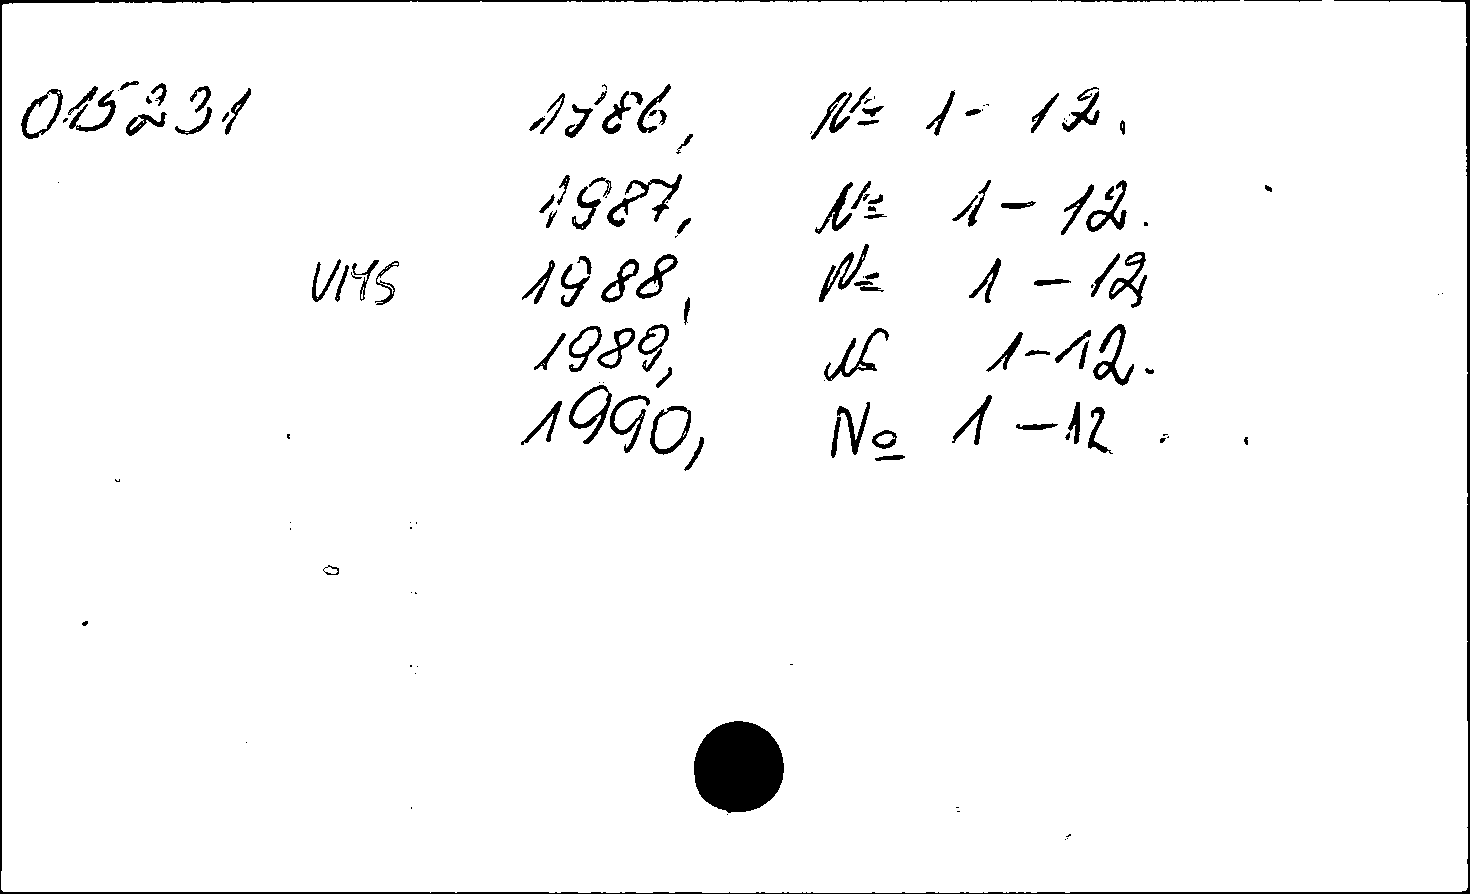 015231 1986, № 1 - 12.
1987, № 1 - 12.
VIMS 1988, № 1 - 12,
1989, № 1-12.
1990, № 1 - 12